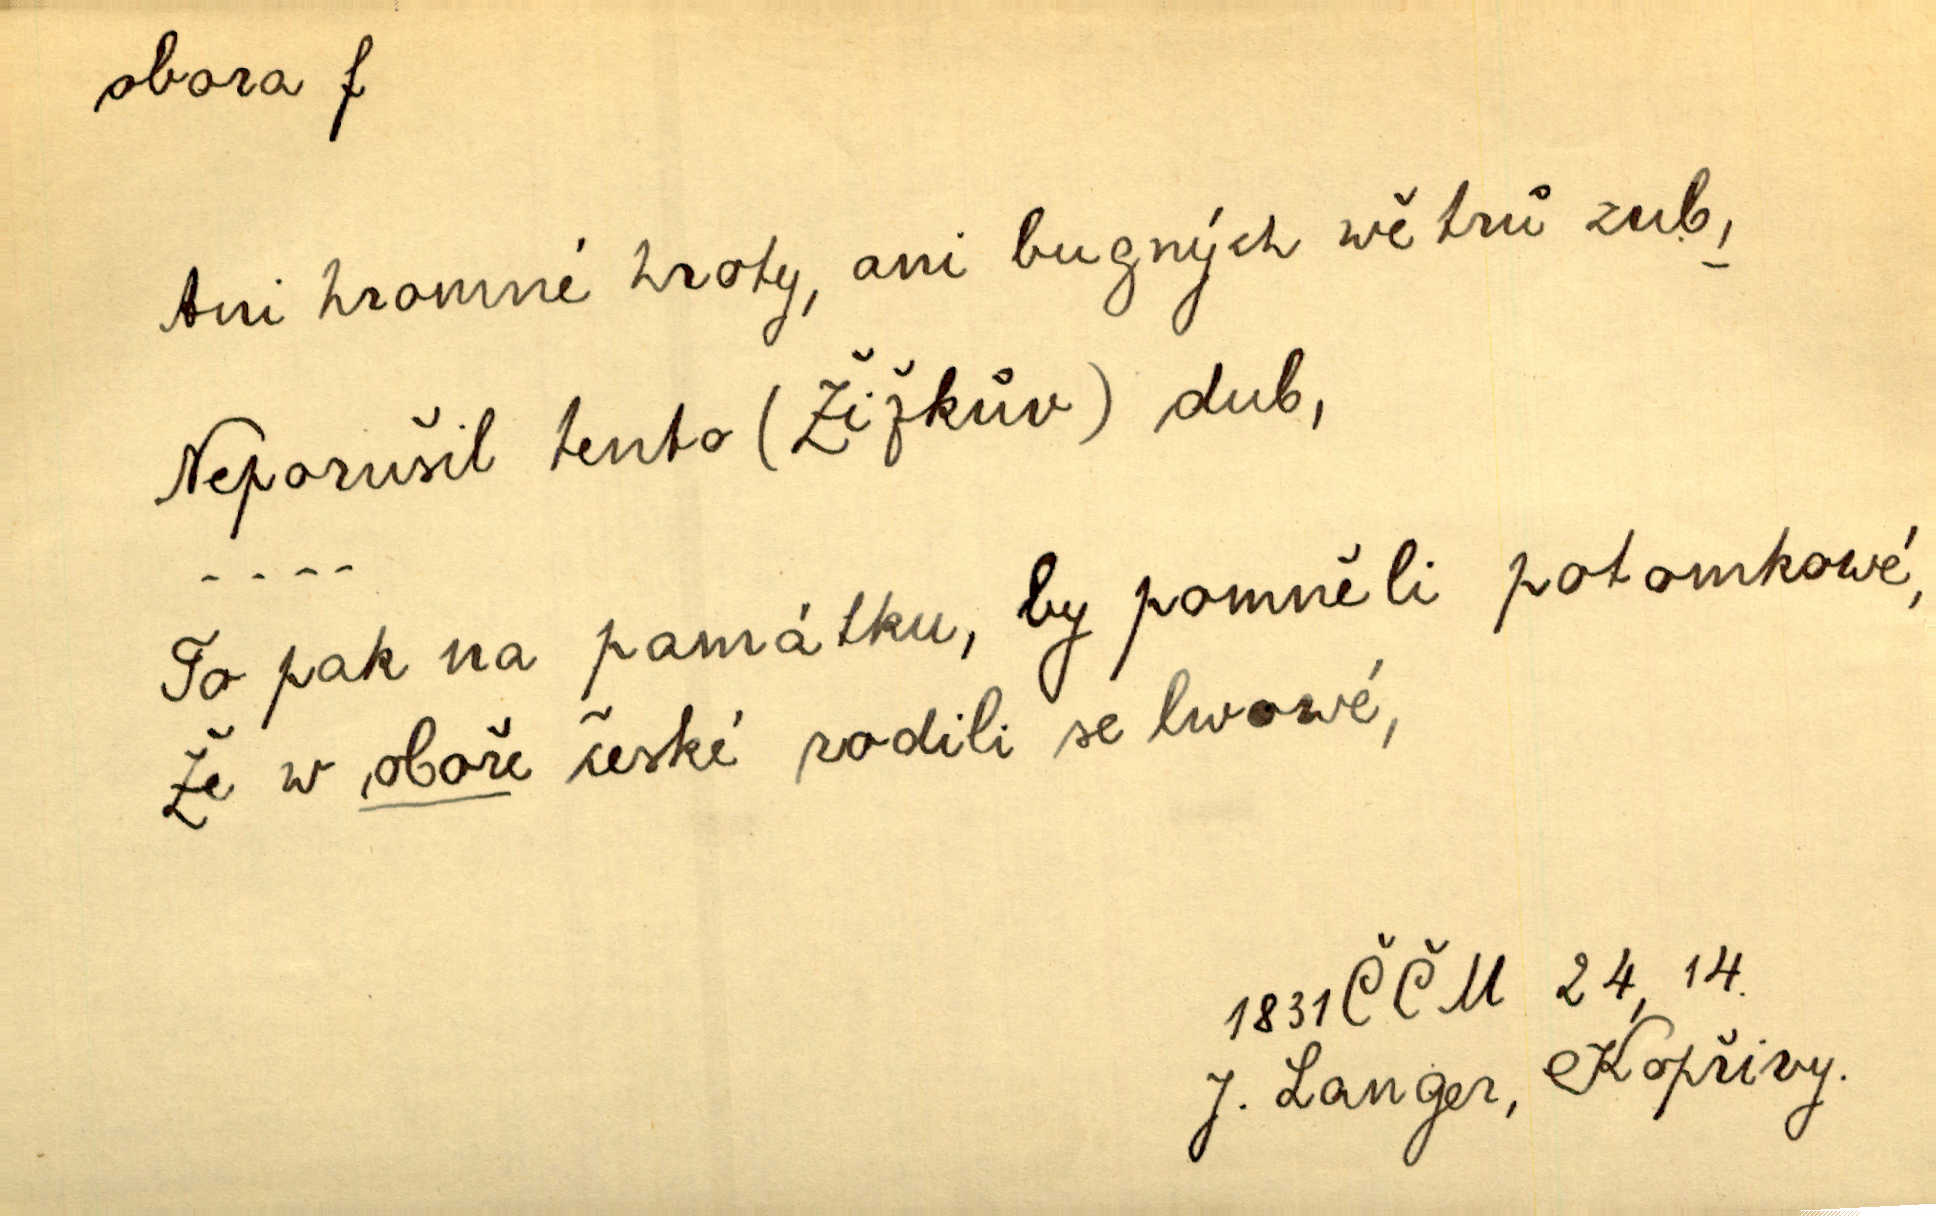 obora f
Ani hromné hroty, ani bugných wětrů zub,
Neporušil tento (Žižkův) dub,
- - - -
To pak na památku, by pomněli potomkowé,
Že w oboře české rodili se lwowé,
1831 ČČM 24, 14.
J. Langer, Kopřivy.